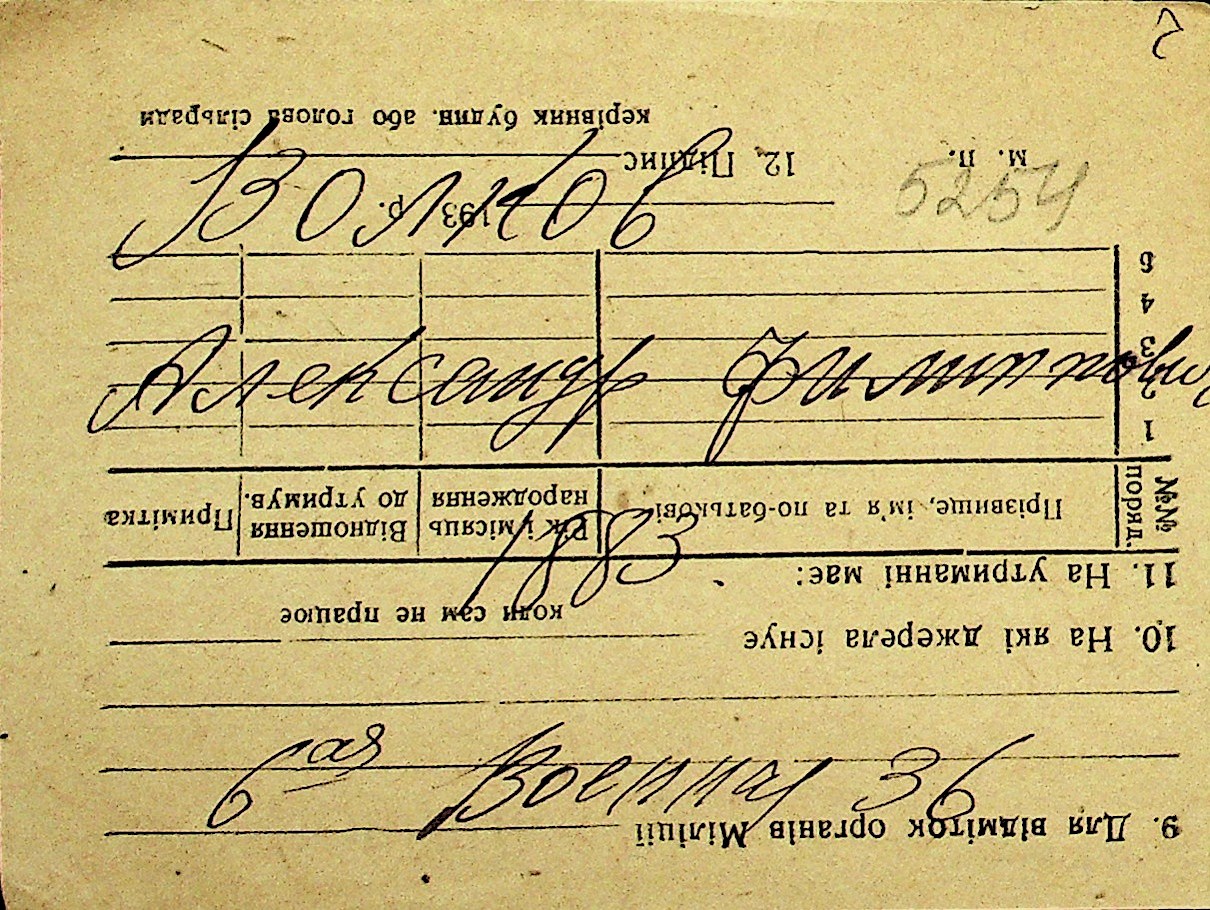 5254
Волков
Александр Филиппович
1883
6ая Военная 36
9. Для відміток органів Міліції
10. На які джерела існує
коли сам не працює
11. На утриманні має:
№№ поряд. Прізвище, ім'я та по-батькові Рік і місяць народження Відношення до утримув. Примітка
1
2
3
4
5
193 р.
М. П. 12. Підпис
керівник будив. або голова сільради